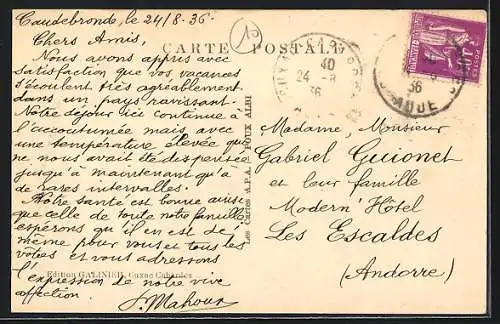 Caudebronde, le 24/8-36-
Chers Amis,
Nous avons appris avec
satisfaction que vos vacances
s'écoulent très agréablement
dans un pays ravissant.
Notre séjour ici continue à
l'accoutumée mais avec
une température élevée qui
ne nous avait été dispensée
jusqu'à maintenant qu'à
de rares intervalles.
Notre santé est bonne ainsi
que celle de toute notre famille
espérons qu'il en est de
même pour vous et tous les
vôtres et vous adressons
l'expression de notre vive
affection.
J. Mahoux
Edition GALINIER, Cuxac Cabardès
CARTE POSTALE
Les Cartes A.P.A. POUX ALBI
40
24 -8
36
36
AUDE
Madame, Monsieur
Gabriel Guionet
et leur famille
Modern' Hôtel
Les Escaldes
(Andorre)